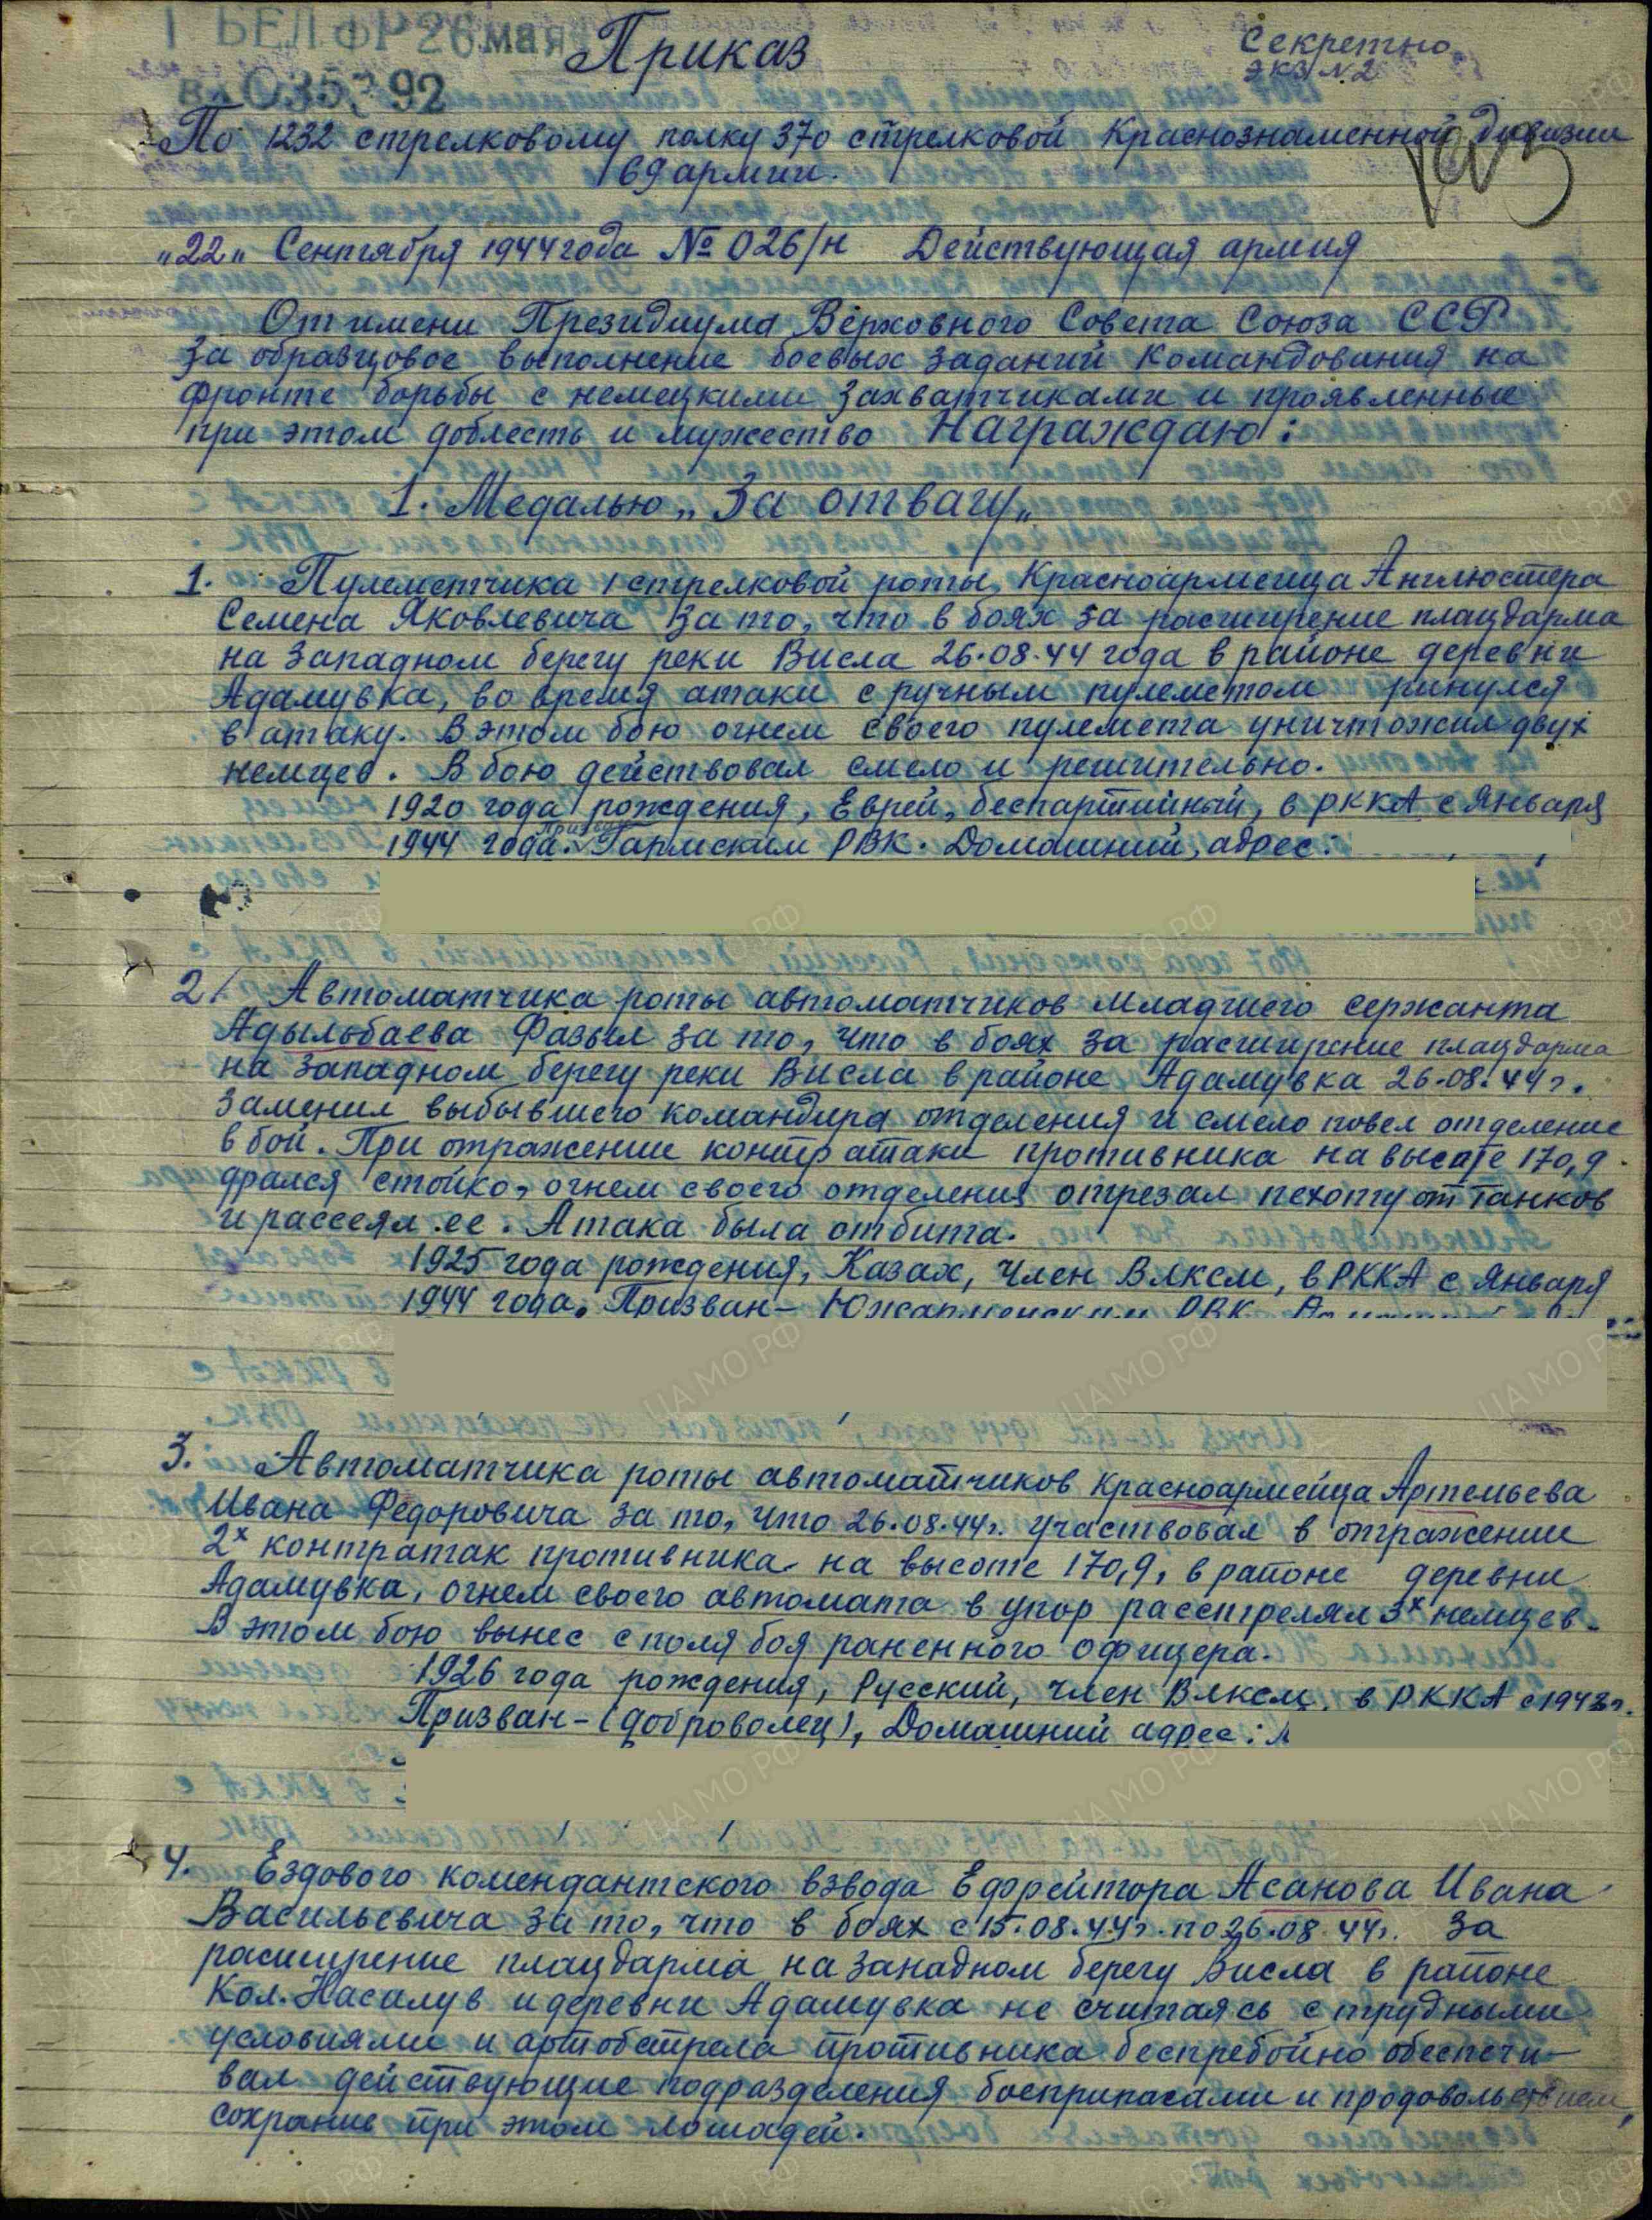 1 БЕЛ ФР 26 мая
Приказ
Секретно
экз N 2
вх 035392
По 1232 стрелковому полку 370 стрелковой Краснознаменной дивизии
69 армии.
"22" Сентября 1944 года № 026/н Действующая армия
От имени Президиума Верховного Совета Союза ССР
за образцовое выполнение боевых заданий командования на
фронте борьбы с немецкими захватчиками и проявленные
при этом доблесть и мужество Награждаю:
1. Медалью „За отвагу"
1. Пулеметчика 1 стрелковой роты, Красноармейца Англюстера
Семена Яковлевича за то, что в боях за расширение плацдарма
на западном берегу реки Висла 26.08.44 года в районе деревни
Адамувка, во время атаки с ручным пулеметом ринулся
в атаку. В этом бою огнем своего пулемета уничтожил двух
немцев. В бою действовал смело и решительно.
1920 года рождения, Еврей, беспартийный, в РККА с Января
1944 года. Призван Гармским РВК. Домашний адрес:
2. Автоматчика роты автоматчиков Младшего сержанта
Адыльбаева Фазыл за то, что в боях за расширение плацдарма
на западном берегу реки Висла в районе Адамувка 26.08.44г.
заменил выбывшего командира отделения и смело повел отделение
в бой. При отражении контр атаки противника на высоте 170,9
дрался стойко, огнем своего отделения отрезал пехоту от танков
и рассеял ее. Атака была отбита.
1925 года рождения, Казах, член ВЛКСМ, в РККА с Января
1944 года. Призван - РВК.
3. Автоматчика роты автоматчиков Красноармейца Артемьева
Ивана Федоровича за то, что 26.08.44г. участвовал в отражении
2х контратак противника на высоте 170,9, в районе деревни
Адамувка, огнем своего автомата в упор расстрелял 3х немцев.
В этом бою вынес с поля боя раненного офицера.
1926 года рождения, Русский, член ВЛКСМ, в РККА с 1943г.
Призван - (доброволец), Домашний адрес:
4. Ездового комендантского взвода Ефрейтора Асанова Ивана
Васильевича за то, что в боях с 15.08.44г. по 26.08.44г. за
расширение плацдарма на западном берегу Висла в районе
Кол. Насилув и деревни Адамувка не считаясь с трудными
условиями и артобстрела противника беспребойно обеспечи-
вал действующие подразделения боеприпасами и продовольствием,
сохранив при этом лошадей.